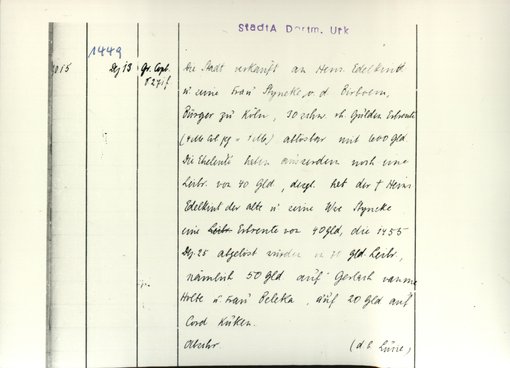 StadtA Dortm. Urk
1449
2015 Dez 13 Gr. Copt.
Die Stadt verkauft an Heinr. Edelkindt
f 271f
u seine Frau Styneke v. d. Birboem,
Bürger zu Köln, 30 schw. rh. Gulden Erbrente
(4 Mk Col pg = 1 Mk) ablösbar mit 600 Gld.
Die Eheleute haben ausserdem noch eine
Leibr. von 40 Gld, desgl. hat der † Heinr
Edelkint der alte u seine Wwe Styneke
eine Leibr Erbrente von 40 Gld, die 1455
Dez. 25 abgelöst wurden in 70 Gld. Leibr.,
nämlich 50 Gld auf Gerlach vanme
Holte u Frau Beleka, auf 20 Gld auf
Cord Küken.
Abschr. (d. S. Lüne,)